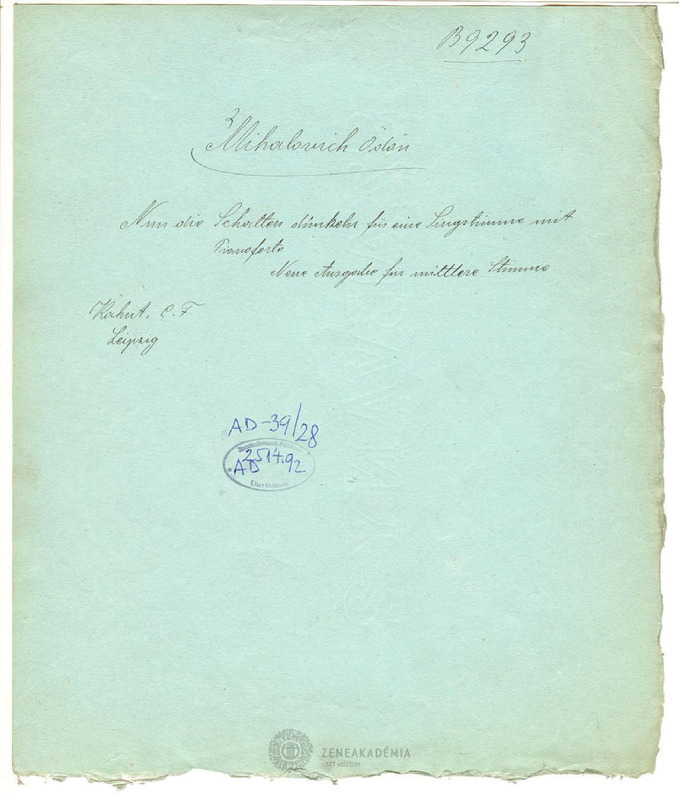 B9293
Mihalovich Ödön
Nun die Schatten dunkeln für eine Singstimme mit
Pianoforte
Neue Ausgabe für mittlere Stimme
Kahnt, C. F.
Leipzig
AD-39/28
2514.92
AD
ZENEAKADÉMIA
LISZT MÚZEUM